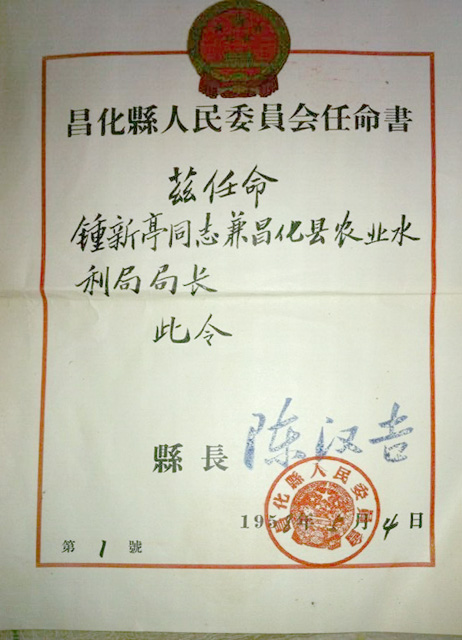 昌化縣人民委員会任命書
兹任命
鍾新亭同志兼昌化县农业水
利局局长
此令
縣長 陈汉吉
昌化縣人民委員会
1958年 月4日
第1號